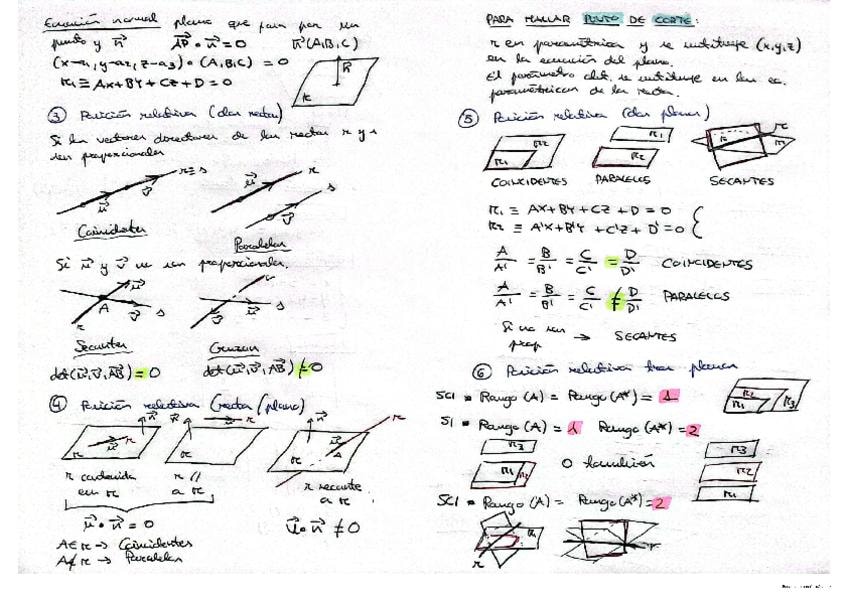 Ecuación normal plano que pasa por un
punto y n⃗  AP⃗ • n⃗ = 0  n⃗ (A,B,C)
(x-a₁, y-a₂, z-a₃) • (A,B,C) = 0
π₁ ≡ Ax + By + Cz + D = 0
n⃗
π
③ Posición relativa (dos rectas)
Si los vectores directores de las rectas r y s
son proporcionales
r ≡ s
u⃗ v⃗
r
s
u⃗ v⃗
Coincidentes
Paralelas
Si u⃗ y v⃗ no son proporcionales.
u⃗
A
v⃗
r
v⃗
Secantes
Cruzan
det(u⃗, v⃗, AB⃗) = 0
det(u⃗, v⃗, AB⃗) ≠ 0
④ Posición relativa (recta/plano)
n⃗
r
u⃗
π
π
n⃗
r
π
A
r contenida
en π
r //
a π
r secante
a π.
u⃗ • n⃗ = 0
u⃗ • n⃗ ≠ 0
A∈π → Coincidentes
A∉π → Paralelas
PARA HALLAR PUNTO DE CORTE:
r en paramétrica y se sustituye (x,y,z)
en la ecuación del plano.
El parámetro obt. se sustituye en las ec.
paramétricas de la recta.
⑤ Posición relativa (dos planos)
π₁ π₂
π₁
π₂
π r
COINCIDENTES
PARALELOS
SECANTES
π₁ ≡ Ax + By + Cz + D = 0
π₂ ≡ A'x + B'y + C'z + D' = 0
A/A' = B/B' = C/C' = D/D' COINCIDENTES
A/A' = B/B' = C/C' ≠ D/D' PARALELOS
Si no son
prop → SECANTES
⑥ Posición relativa tres planos
SCI = Rango (A) = Rango (A*) = 1
π₂
π₁ π₃
SI = Rango (A) = 1 Rango (A*) = 2
π₃
π₁ π₂
O también
π₃
π₂
π₁
SCI = Rango (A) = Rango (A*) = 2
π₁
r
r